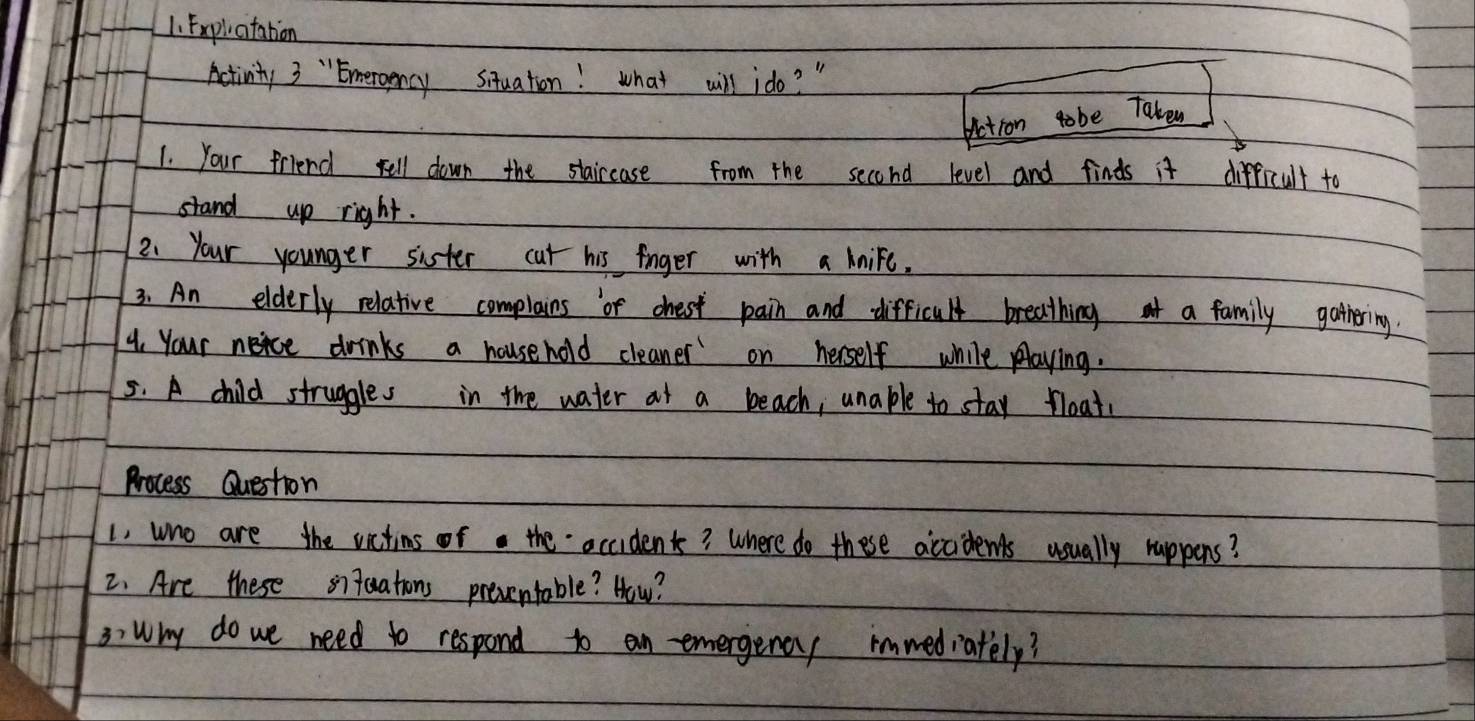 1. Explicitation
Activity 3 "Emergency situation! what will i do?"
Action to be Taken
1. Your friend fell down the staircase from the second level and finds it difficult to
stand up right.
2. Your younger sister cut his finger with a knife.
3. An elderly relative complains of chest pain and difficult breathing at a family gathering.
4. Your neice drinks a household cleaner on herself while playing.
5. A child struggles in the water at a beach, unable to stay float.
Process Question
1. Who are the victims of the accident? Where do these accidents usually happens?
2. Are these situations preventable? How?
3. Why do we need to respond to an emergency immediately?